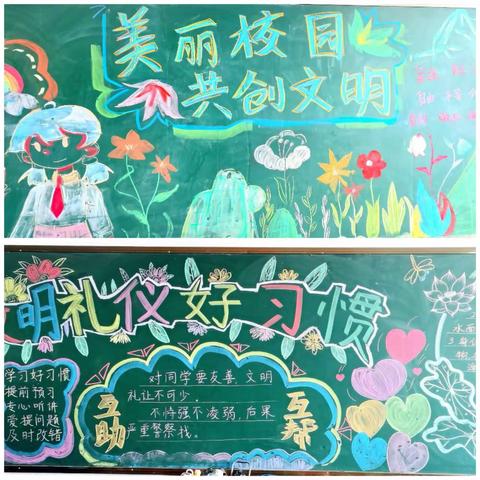 美丽校园
共创文明
自由 平等 公
明礼仪好习惯
学习好习惯
提前预习
专心听讲
爱提问题
及时改错
互助
对同学要友善,文明
礼让不可少。
不恃强不凌弱,后果
严重警察找。
互帮
水面